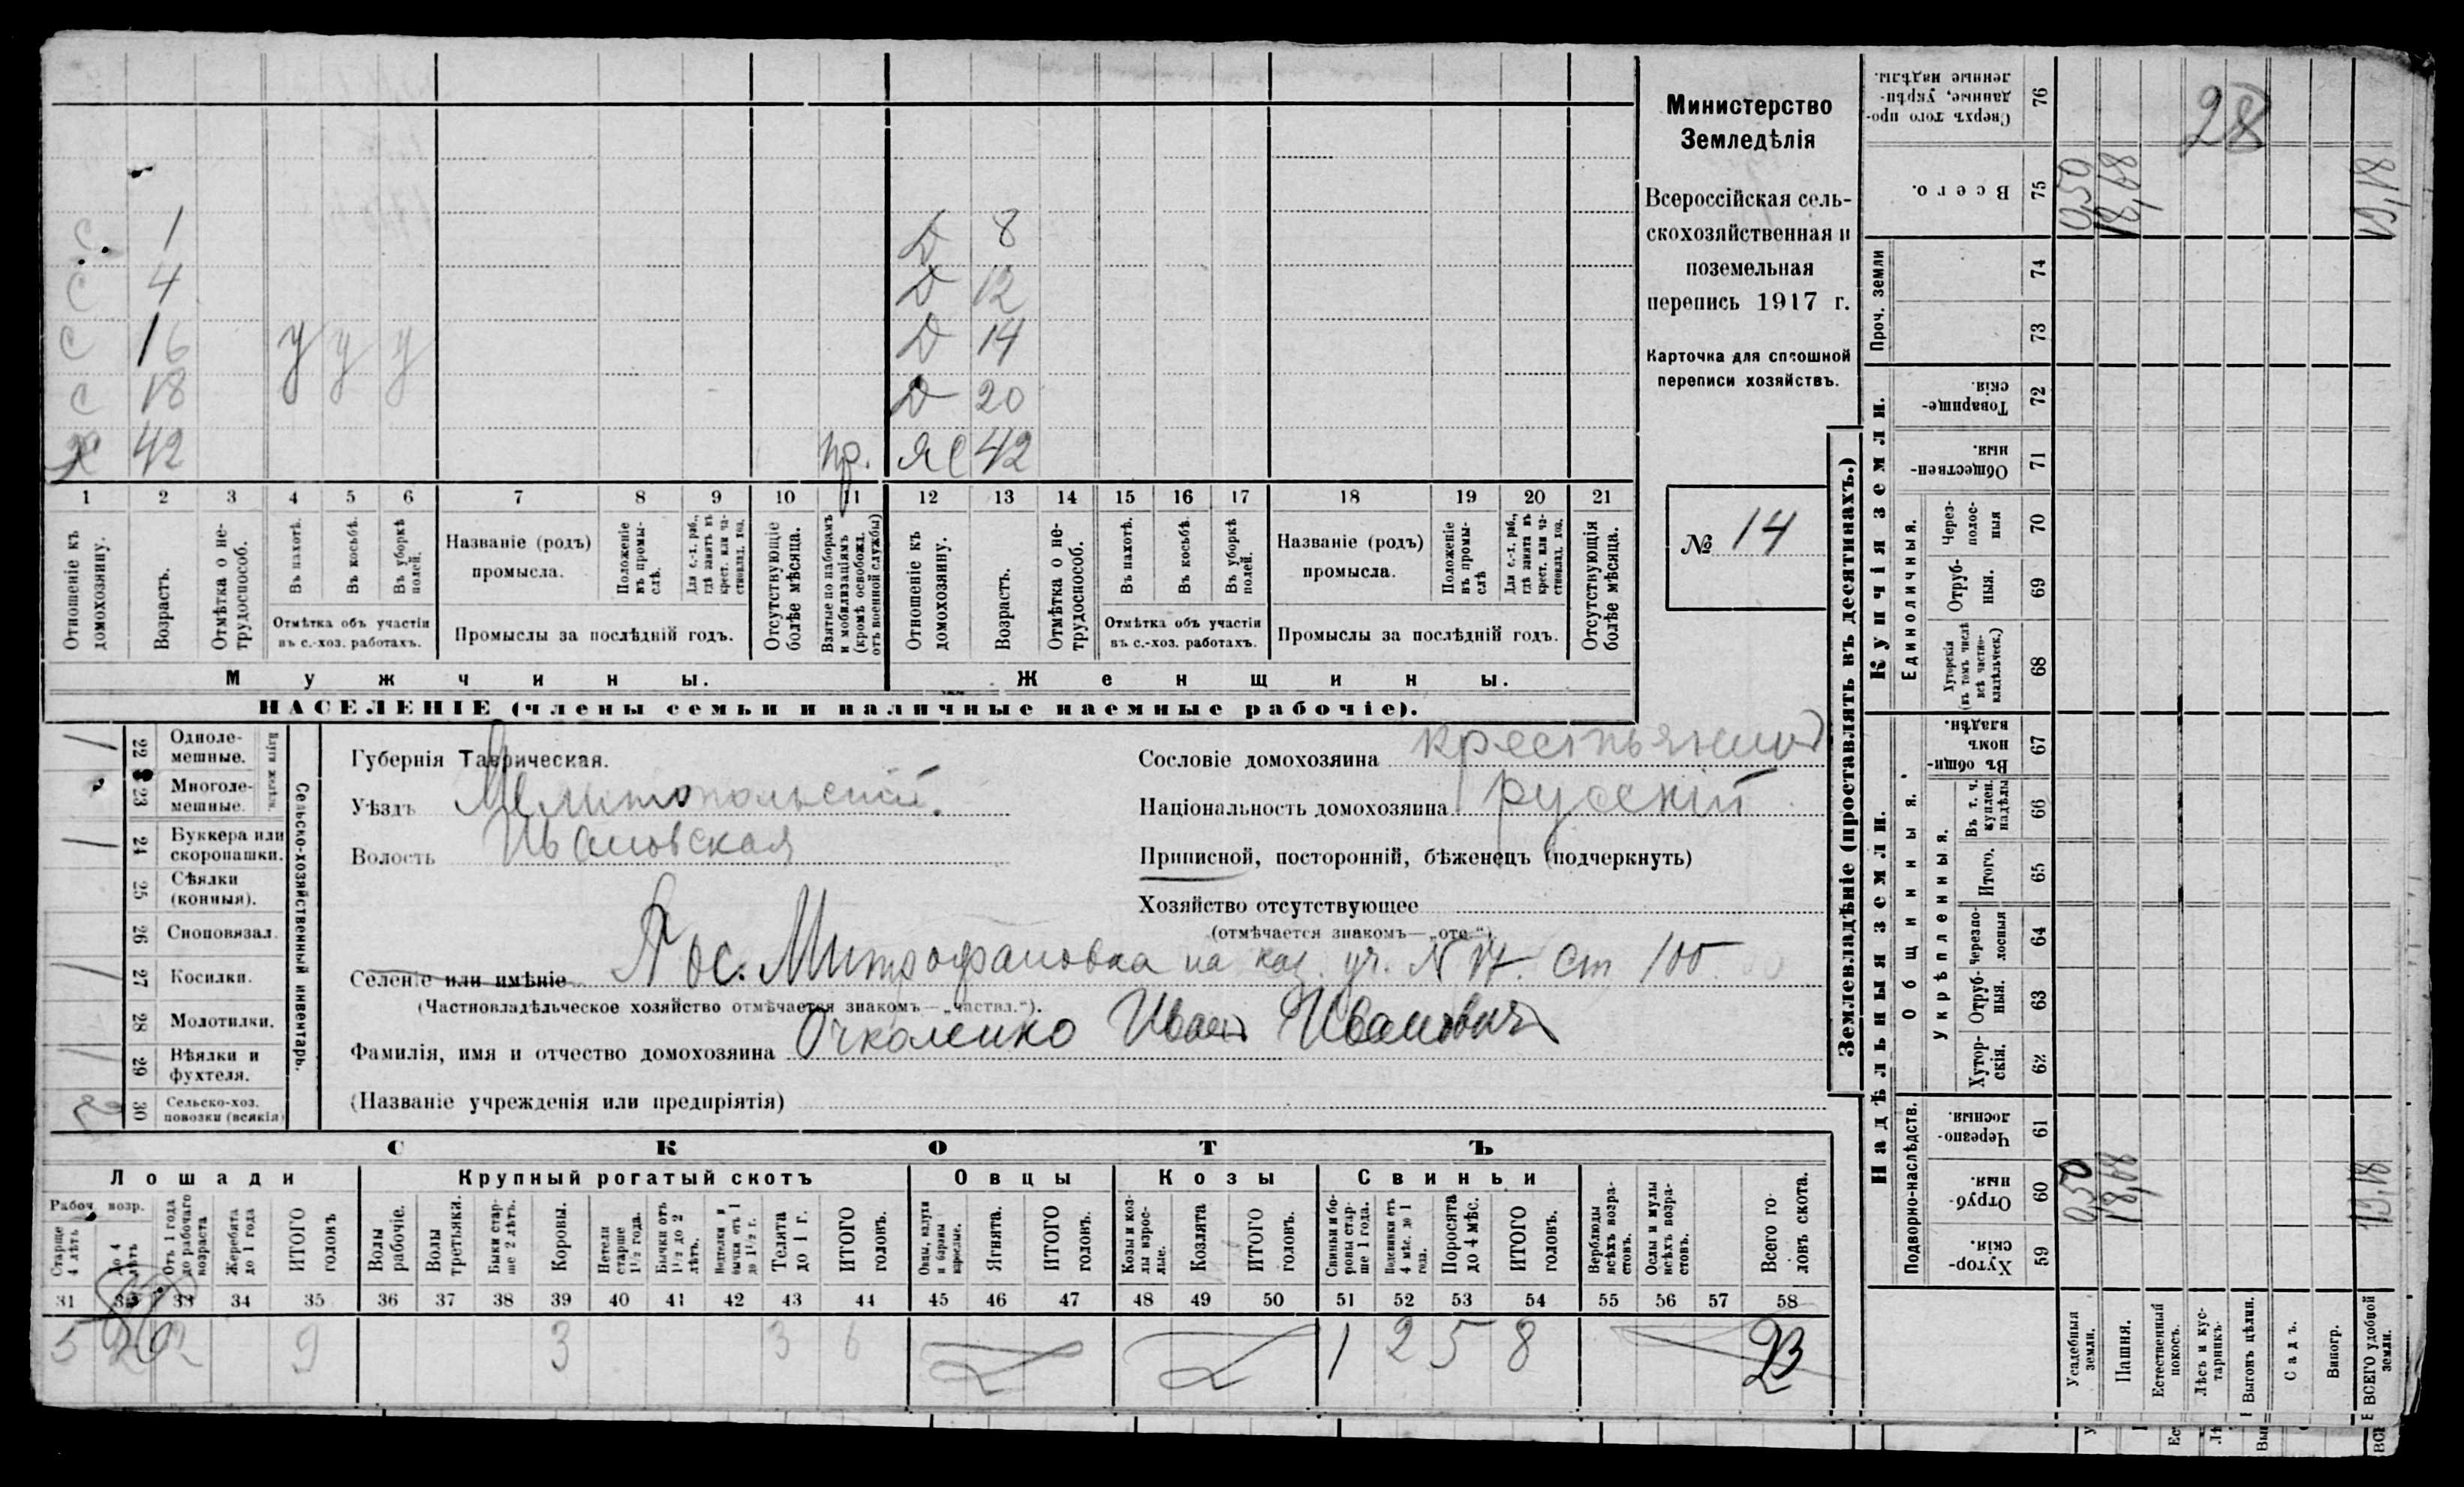 Министерство
Земледѣлія
Всероссійская сель-
скохозяйственная и
поземельная
перепись 1917 г.
Карточка для сплошной
переписи хозяйствъ.
№ 14
с 1 Д 8
с 4 Д 12
с 16 у у у Д 14
с 18 Д 20
х 42 пр. 42
1 2 3 4 5 6 7 8 9 10 11 12 13 14 15 16 17 18 19 20 21
Отношеніе къ домохозяину.
Возрастъ.
Отмѣтка о не-трудоспособ.
Въ пахотѣ.
Въ косьбѣ.
Въ уборкѣ полей.
Отмѣтка объ участіи въ с.-хоз. работахъ.
Названіе (родъ) промысла.
Положеніе въ промы-слѣ.
Для с.-х. раб., гдѣ занятъ въ крест. или ча-стновлад. хоз.
Промыслы за послѣдній годъ.
Отсутствующіе болѣе мѣсяца.
Взятые по наборамъ и мобилизаціямъ (кромѣ освобожд. отъ военной службы)
Отношеніе къ домохозяину.
Возрастъ.
Отмѣтка о не-трудоспособ.
Въ пахотѣ.
Въ косьбѣ.
Въ уборкѣ полей.
Отмѣтка объ участіи въ с.-хоз. работахъ.
Названіе (родъ) промысла.
Положеніе въ промы-слѣ
Для с.-х. раб., гдѣ занята въ крест. или ча-стновлад. хоз.
Промыслы за послѣдній годъ.
Отсутствующія болѣе мѣсяца.
Мужчины. Женщины.
НАСЕЛЕНІЕ (члены семьи и наличные наемные рабочіе).
Сельско-хозяйственный инвентарь.
22 Одноле-мешные.
23 Многоле-мешные.
24 Буккера или скоропашки.
25 Сѣялки (конныя).
26 Сноповязал.
27 Косилки.
28 Молотилки.
29 Вѣялки и фухтеля.
30 Сельско-хоз. повозки (всякія) 2
Губернія Таврическая.
Уѣздъ Мелитопольскій.
Волость Ивановская
Сословіе домохозяина крестьянинъ
Національность домохозяина русскій
Приписной, посторонній, бѣженецъ (подчеркнуть)
Хозяйство отсутствующее
(отмѣчается знакомъ—„отс.“).
Селеніе или имѣніе Пос. Митрофановка на каз. уч. N 17. ст 100
(Частновладѣльческое хозяйство отмѣчается знакомъ—„частвл.“).
Фамилія, имя и отчество домохозяина Очколенко Иванъ Ивановичъ
(Названіе учрежденія или предпріятія)
СКОТЪ
Лошади Крупный рогатый скотъ Овцы Козы Свиньи
Рабоч. возр.
Старше 4 лѣтъ
до 4 лѣтъ
Отъ 1 года до рабочаго возраста
Жеребята до 1 года
ИТОГО головъ
Волы рабочіе.
Волы третьяки.
Быки стар-ше 2 лѣтъ.
Коровы.
Нетели старше 1½ года.
Бычки отъ 1½ до 2 лѣтъ.
Нетелки и бычки отъ 1 до 1½ г.
Телята до 1 г.
ИТОГО головъ.
Овцы, валухи и бараны взрослые.
Ягнята.
ИТОГО головъ.
Козы и коз-лы взрос-лые.
Козлята
ИТОГО головъ.
Свиньи и бо-ровы стар-ше 1 года.
Подсвинки отъ 4 мѣс. до 1 года.
Поросята до 4 мѣс.
ИТОГО головъ.
Верблюды всѣхъ возра-стовъ.
Ослы и мулы всѣхъ возра-стовъ.
Всего го-ловъ скота.
31 32 33 34 35 36 37 38 39 40 41 42 43 44 45 46 47 48 49 50 51 52 53 54 55 56 57 58
5 2 2 9 3 3 6 1 2 5 8 23
Землевладѣніе (проставлять въ десятинахъ.)
Надѣльныя земли. Купчія земли. Проч. земли
Подворно-наслѣдств. Общинныя. Укрѣпленныя. Единоличныя.
76 Сверхъ того про-данные, укрѣп-ленные надѣлы.
75 Всего.
74
73
72 Товарище-скія.
71 Обществен-ныя.
70 Через-полос-ныя
69 Отруб-ныя.
68 Хуторскія (въ томъ числѣ всѣ частно-владѣльческ.)
67 Въ общи-номъ владѣн.
66 Въ т. ч. куплен. надѣлы
65 Итого.
64 Черезпо-лосныя
63 Отруб-ныя.
62 Хутор-скія.
61 Черезпо-лосныя.
60 Отруб-ныя.
59 Хутор-скія.
28
0,50
18,68
0,50
18,68
Усадебныя земли.
Пашня.
Естественный покосъ.
Лѣсъ и кус-тарникъ.
Выгонъ цѣлин.
Садъ.
Виногр.
ВСЕГО удобной земли.